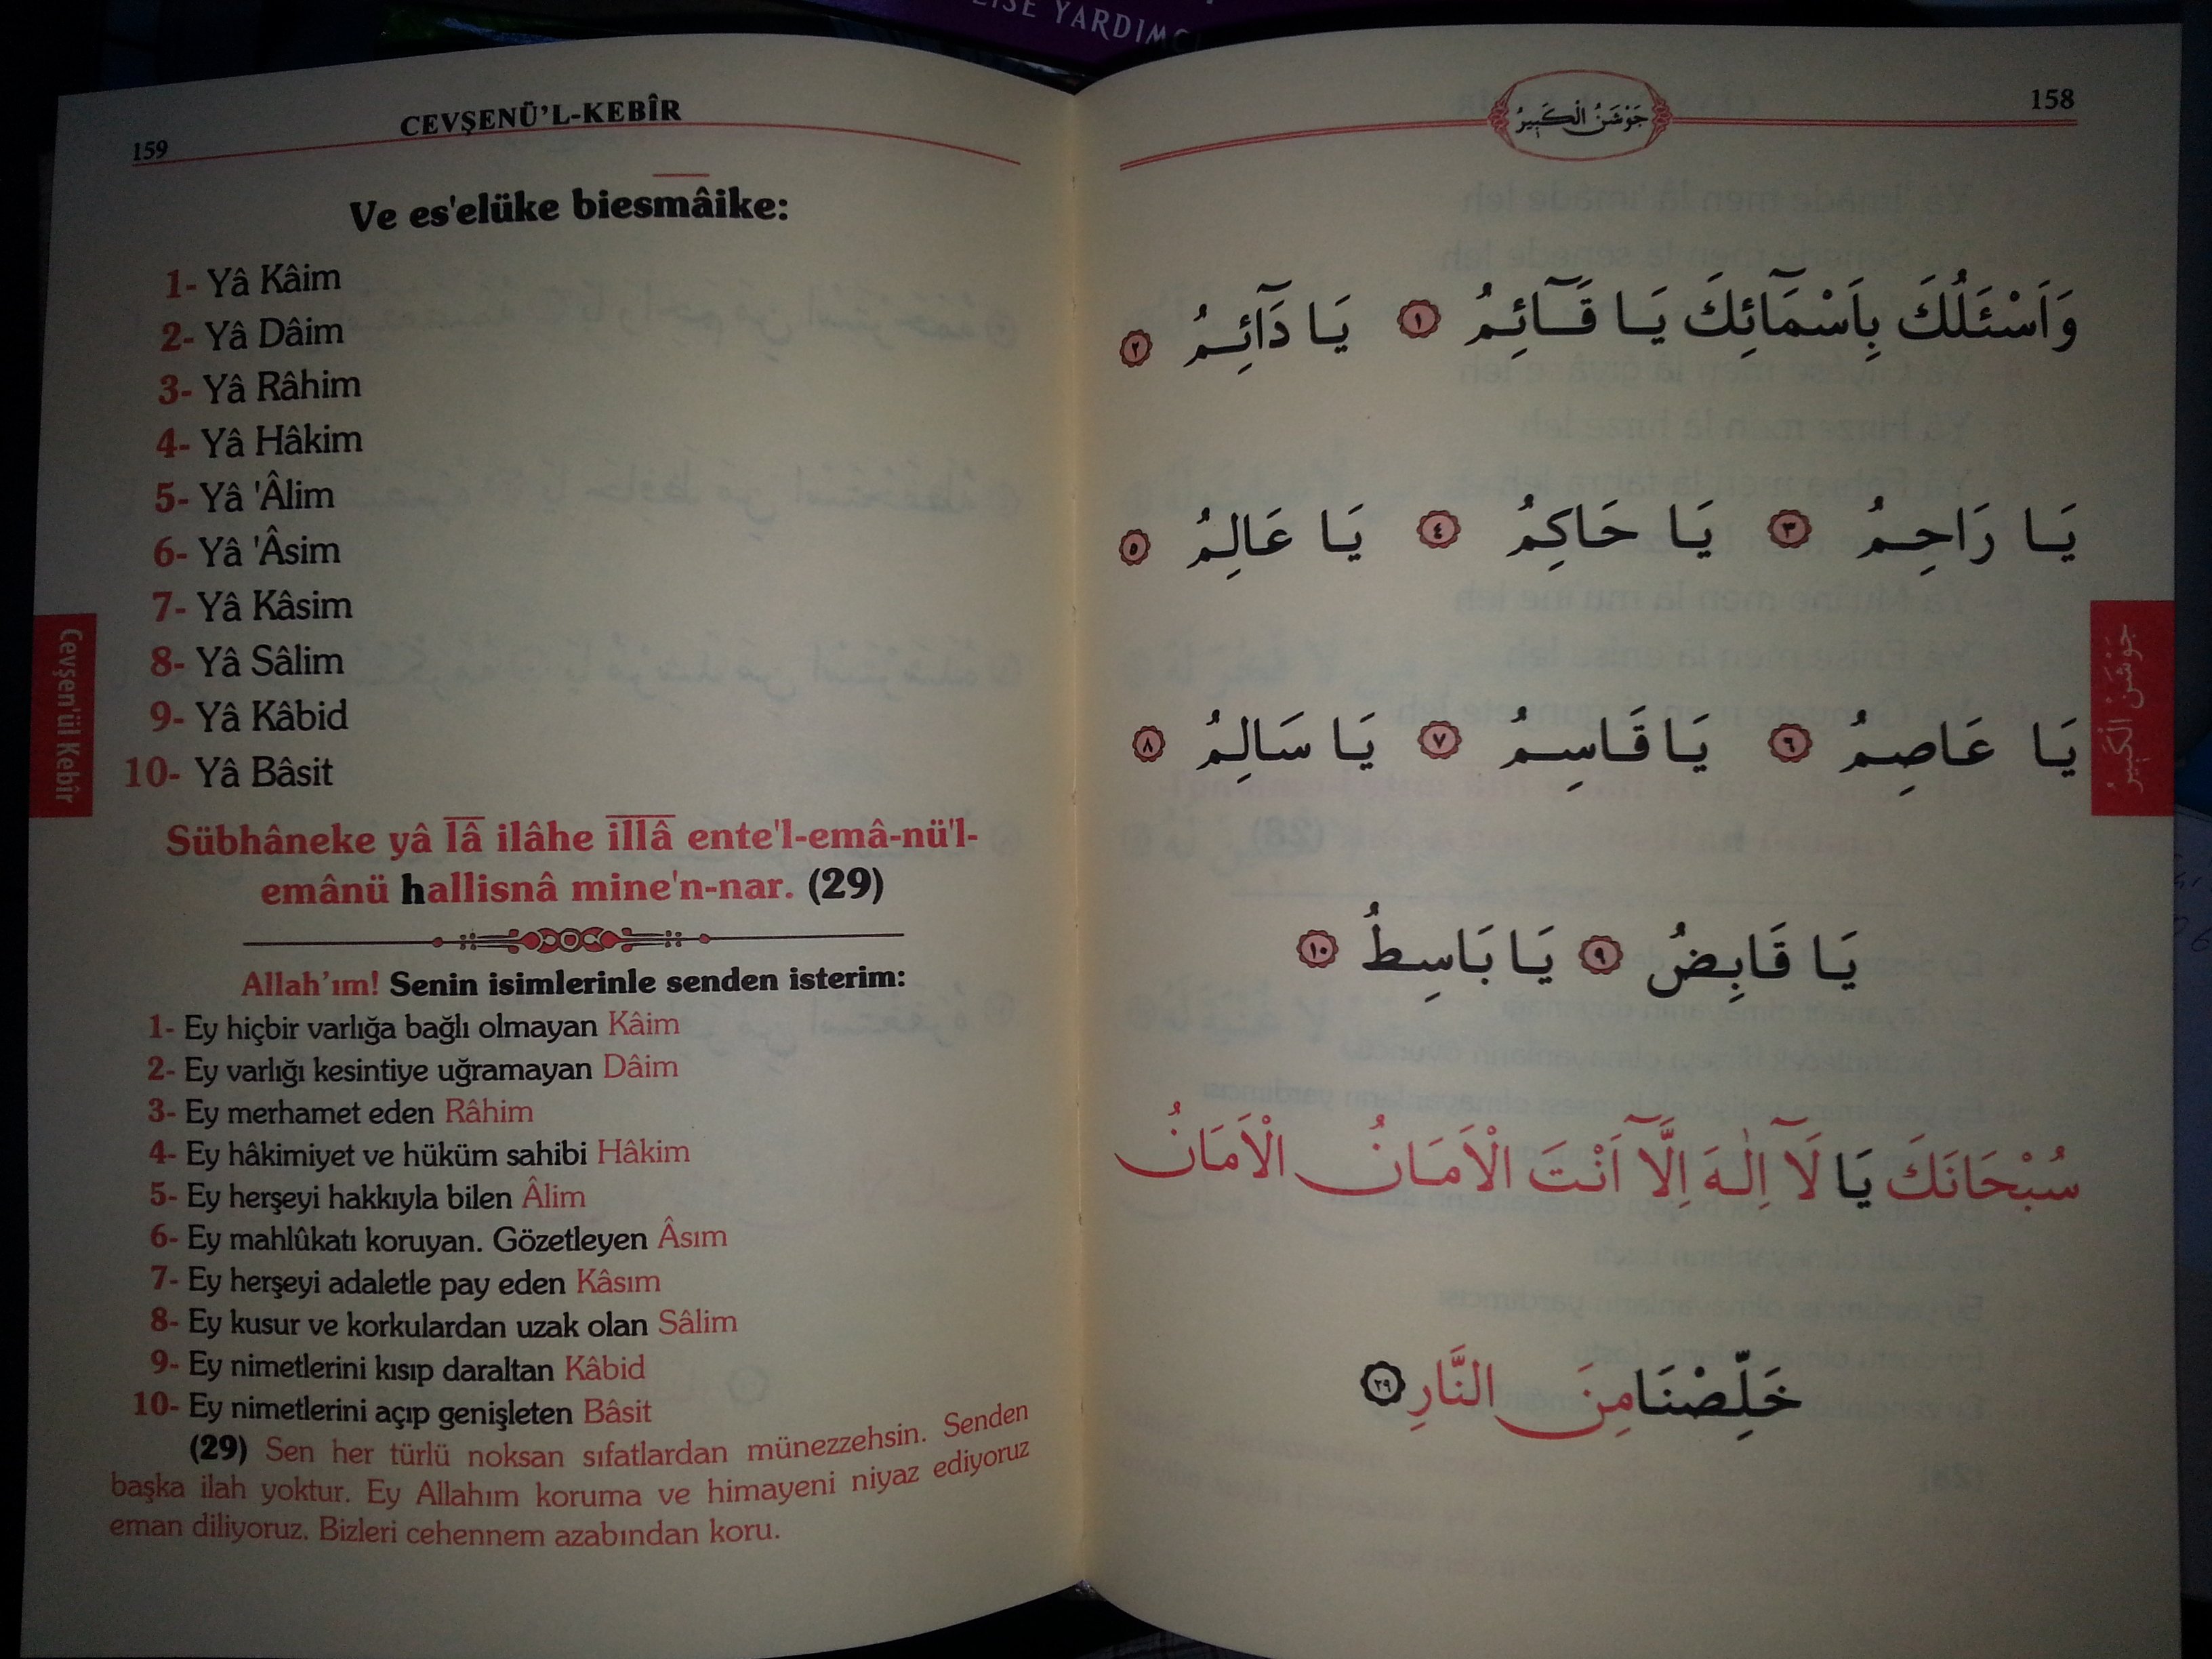 LİSE YARDIMC
CEVŞENÜ'L-KEBÎR
159
Ve es'elüke biesmâike:
1- Yâ Kâim
2- Yâ Dâim
3- Yâ Râhim
4- Yâ Hâkim
5- Yâ 'Âlim
6- Yâ 'Âsim
7- Yâ Kâsim
8- Yâ Sâlim
9- Yâ Kâbid
10- Yâ Bâsit
Sübhâneke yâ lâ ilâhe illâ ente'l-emâ-nü'l-
emânü hallisnâ mine'n-nar. (29)
Allah'ım! Senin isimlerinle senden isterim:
1- Ey hiçbir varlığa bağlı olmayan Kâim
2- Ey varlığı kesintiye uğramayan Dâim
3- Ey merhamet eden Râhim
4- Ey hâkimiyet ve hüküm sahibi Hâkim
5- Ey herşeyi hakkıyla bilen Âlim
6- Ey mahlûkatı koruyan. Gözetleyen Âsım
7- Ey herşeyi adaletle pay eden Kâsım
8- Ey kusur ve korkulardan uzak olan Sâlim
9- Ey nimetlerini kısıp daraltan Kâbid
10- Ey nimetlerini açıp genişleten Bâsit
(29) Sen her türlü noksan sıfatlardan münezzehsin. Senden
başka ilah yoktur. Ey Allahım koruma ve himayeni niyaz ediyoruz
eman diliyoruz. Bizleri cehennem azabından koru.
Cevşen'ül Kebîr
جَوْشَنُ الْكَبِيرُ
158
وَاَسْئَلُكَ بِاَسْمَآئِكَ يَا قَآئِمُ ١ يَا دَآئِمُ ٢
يَا رَاحِمُ ٣ يَا حَاكِمُ ٤ يَا عَالِمُ ٥
يَا عَاصِمُ ٦ يَا قَاسِمُ ٧ يَا سَالِمُ ٨
يَا قَابِضُ ٩ يَا بَاسِطُ ١٠
سُبْحَانَكَ يَا لَآ اِلٰهَ اِلَّآ اَنْتَ الْاَمَانُ الْاَمَانُ
خَلِّصْنَا مِنَ النَّارِ ٢٩
جَوْشَنُ الْكَبِيرُ